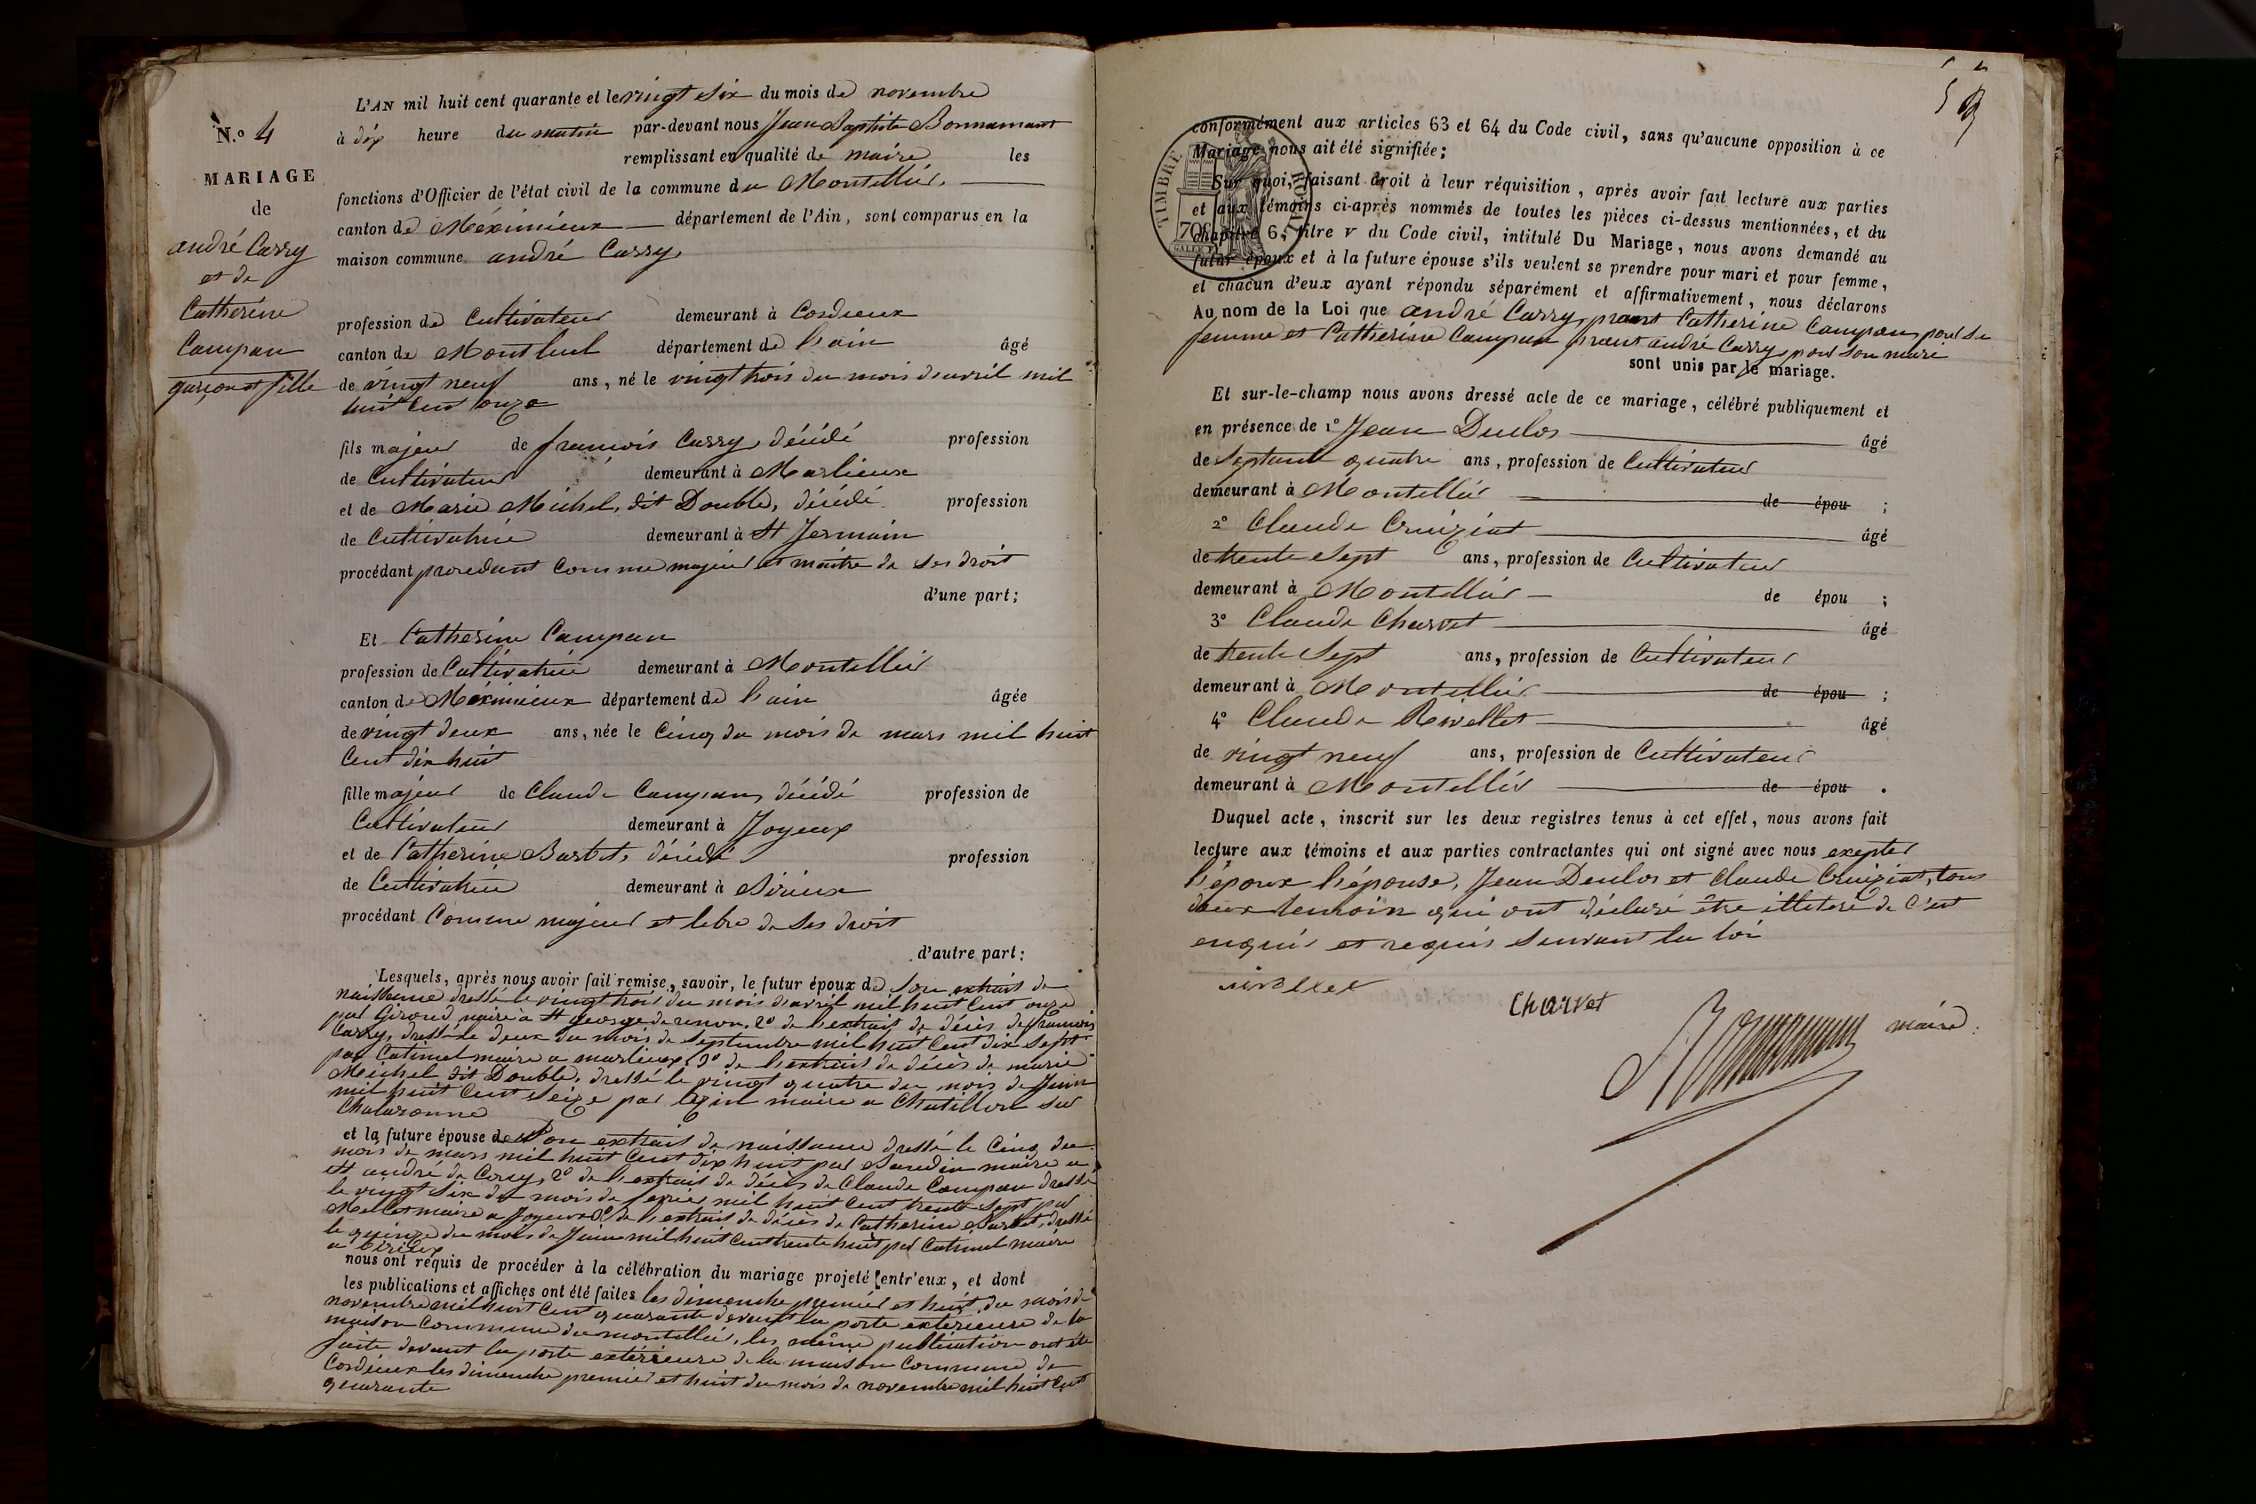 N.º 4
MARIAGE
de
andré Carry
et de
Catherine
Campan
garçon et fille
L'AN mil huit cent quarante et le vingt six du mois de novembre
à dix heure du matin par-devant nous Jean Baptiste Bonnamant
remplissant en qualité de maire les
fonctions d'Officier de l'état civil de la commune du Montellier,
canton de Méximieux département de l'Ain, sont comparus en la
maison commune andré Carry,
profession de Cultivateur demeurant à Cordieux
canton de Montluel département de l'ain âgé
de vingt neuf ans, né le vingt trois du mois d'avril mil
huit cent onze
fils majeur de françois Carry, décédé profession
de Cultivateur demeurant à Marlieux
et de Marie Michel, dit Double, décédé profession
de Cultivatrice demeurant à St Jermain
procédant procedant comme majeur et maitre de ses droit
d'une part;
Et Catherine Campan
profession de Cultivatrice demeurant à Montellier
canton de Méximieux département de l'ain âgée
de vingt deux ans, née le Cinq du mois de mars mil huit
Cent dix huit
fille majeur de Claude Campan, décédé profession de
Cultivateur demeurant à Joyeux
et de Catherine Barbet, décédé profession
de Cultivatrice demeurant à Birieux
procédant Comme majeur et libre de ses droit
d'autre part;
Lesquels, après nous avoir fait remise, savoir, le futur époux de son extrait de
naissance dressé le vingt trois du mois d'avril mil huit cent onze
par Giroud maire à St george de renon, 2º de l'extrait de décès de françois
Carry, dressé le deux du mois de septembre mil huit cent dix sept
par Catimel maire a marlieux, 3º de l'extrait de décès de marie
Michel dit Double, dressé le vingt quatre du mois de Juin
mil huit cent seize par maire a Chatillon sur
Chalaronne
et la future épouse de son extrait de naissance dressé le Cinq du
mois de mars mil huit cent dix huit par maire a
St andré de Corcy, 2º de l'extrait de décès de Claude Campan dressé
le vingt six du mois de mil huit cent trente sept par
maire a Joyeux 3º de l'extrait de décès de Catherine Barbet, dressé
le quinze du mois de Juin mil huit cent trente huit par Catimel maire
a Birieux
nous ont requis de procéder à la célébration du mariage projeté entr'eux, et dont
les publications et affiches ont été faites les dimenche premier et huit du mois de
novembre mil huit cent quarante devant la porte extérieure de la
maison commune du montellier, les même publication ont été
faite devant la porte extérieure de la maison commune de
Cordieux les dimenche premier et huit du mois de novembre mil huit cent
quarante
conformément aux articles 63 et 64 du Code civil, sans qu'aucune opposition à ce
Mariage nous ait été signifiée;
TIMBRE ROYAL
70C
Sur quoi, faisant droit à leur réquisition, après avoir fait lecture aux parties
et aux témoins ci-après nommés de toutes les pièces ci-dessus mentionnées, et du
chapitre 6, titre V du Code civil, intitulé Du Mariage, nous avons demandé au
futur époux et à la future épouse s'ils veulent se prendre pour mari et pour femme,
et chacun d'eux ayant répondu séparément et affirmativement, nous déclarons
Au nom de la Loi que andré Carry, prant Catherine Campan pour sa
femme et Catherine Campan prant andré Carry pour son mari
sont unis par le mariage.
Et sur-le-champ nous avons dressé acte de ce mariage, célébré publiquement et
en présence de 1º Jean Duclos âgé
de septante quatre ans, profession de Cultivateur
demeurant à Montellier de épou ;
2º Claude Cruiziat âgé
de trente sept ans, profession de Cultivateur
demeurant à Montellier de épou ;
3º Claude Charvet âgé
de trente sept ans, profession de Cultivateur
demeurant à Montellier de épou ;
4º Claude Rivellet âgé
de vingt neuf ans, profession de Cultivateur
demeurant à Montellier de épou .
Duquel acte, inscrit sur les deux registres tenus à cet effet, nous avons fait
lecture aux témoins et aux parties contractantes qui ont signé avec nous exepter
l'époux l'épouse, Jean Duclos et Claude Cruiziat, tous
deux temoin qui ont déclaré être illiteré de c'est
enquis et requis suivant la loi
Charvet
maire